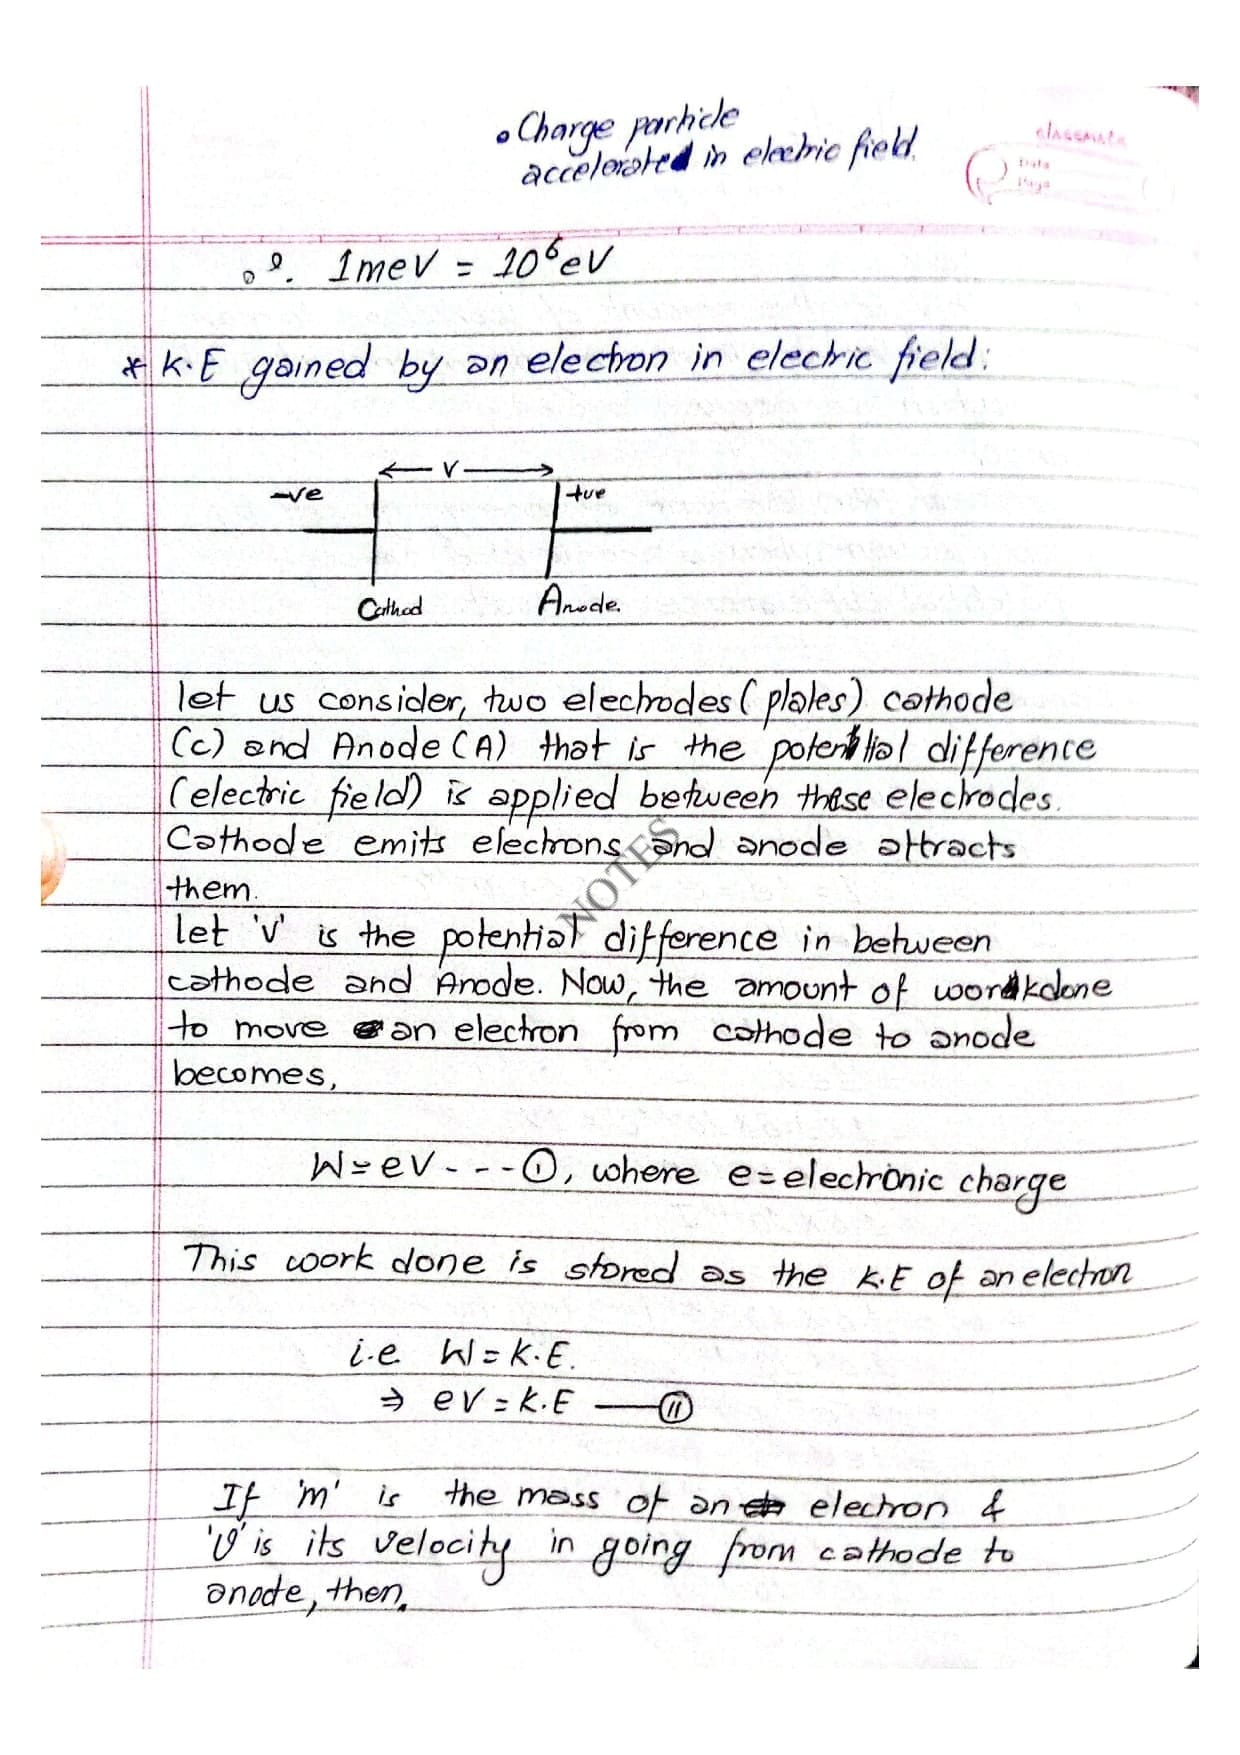 • Charge particle
accelerated in electric field.
classmate
Date
Page
∴ 1meV = 10⁶eV
* K.E gained by an electron in electric field:
← V →
-ve
+ve
Cathod
Anode.
let us consider, two electrodes (plates) cathode
(c) and Anode (A) that is the potential difference
(electric field) is applied between these electrodes.
Cathode emits electrons and anode attracts
them.
NOTES
let 'v' is the potential difference in between
cathode and Anode. Now, the amount of workdone
to move an electron from cathode to anode
becomes,
W=eV - - - ①, where e=electronic charge
This work done is stored as the K.E of an electron
i.e W=K.E.
⇒ eV=K.E — ⑪
If 'm' is the mass of an electron &
'v' is its velocity in going from cathode to
anode, then,